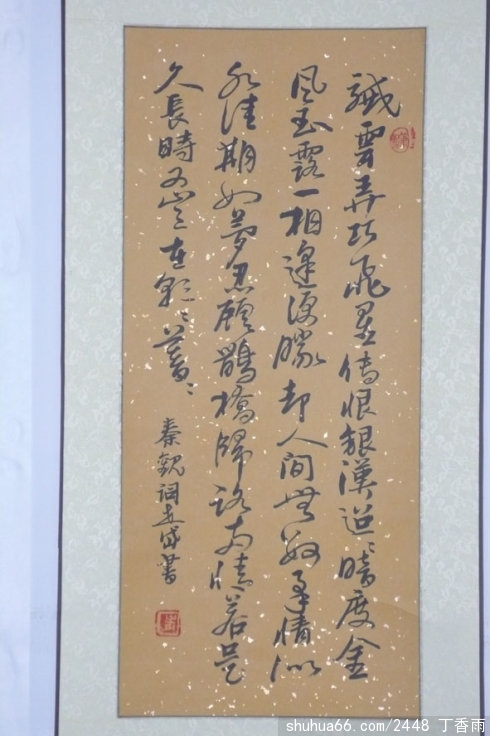 纖雲弄巧飛星傳恨銀漢迢々暗度金
風玉露一相逢便勝却人間無數柔情似
水佳期如夢忍顧鵲橋歸路兩情若是
久長時又豈在朝々暮々
秦觀詞 書
shuhua66.com/2448 丁香雨